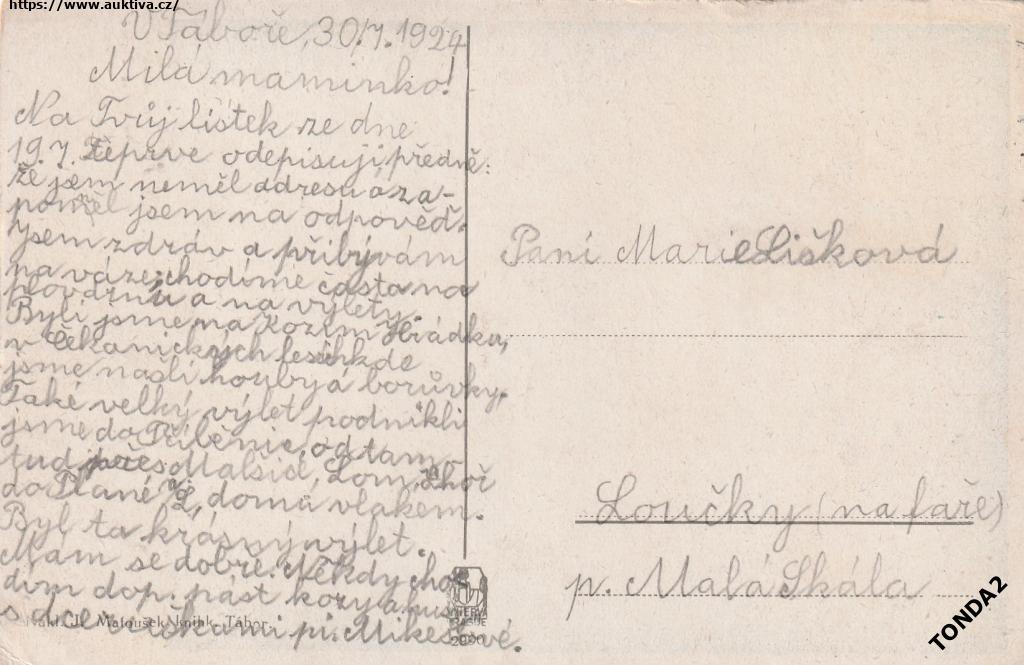 https://www.auktiva.cz/
V Táboře, 30./7. 1924
Milá maminko!
Na Tvůj lístek ze dne
19.7. teprve odepisuji, předně:
že jsem neměl adresu a za-
poměl jsem na odpověď.
Jsem zdráv a přibývám
na váze; chodíme často na
plovárnu a na výlety.
Byli jsme na Kozím Hrádku,
v Čekanických lesích kde
jsme našli houby a borůvky.
Také velký výlet podnikli
jsme do Příběnic, od tam-
tud přes Malšice, Lom,
do Plané n/L, domů vlakem.
Byl ta krásný výlet.
Mám se dobře. Někdy cho-
dím dop. pást kozy a husy
s dceruškami pí. Mikešové.
Nákl. J. Matoušek, knihk. Tábor.
Paní Marie Lišková
Loučky (na faře)
p. Malá Skála
TONDA2